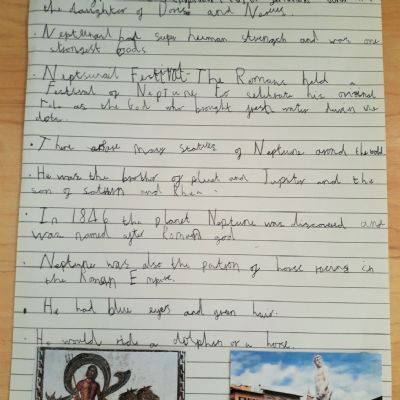 the daughter of Doris and Nerius.
. Neptunail had super human strength and was one
strongest gods
. Neptunail Festival. The Romans held a
Festival of Neptune to celebrate his
role as the God who brought fresh water during the
. There many statues of Neptune around the world.
. He was the brother of and Jupiter and the
son of and Rhea.
. In 1846 the planet Neptune was discovered and
was named after Roman god
. Neptune was also the patron of horse racing in
the Roman Empire.
. He had blue eyes and green hair.
. He would ride a dolphin or a horse.